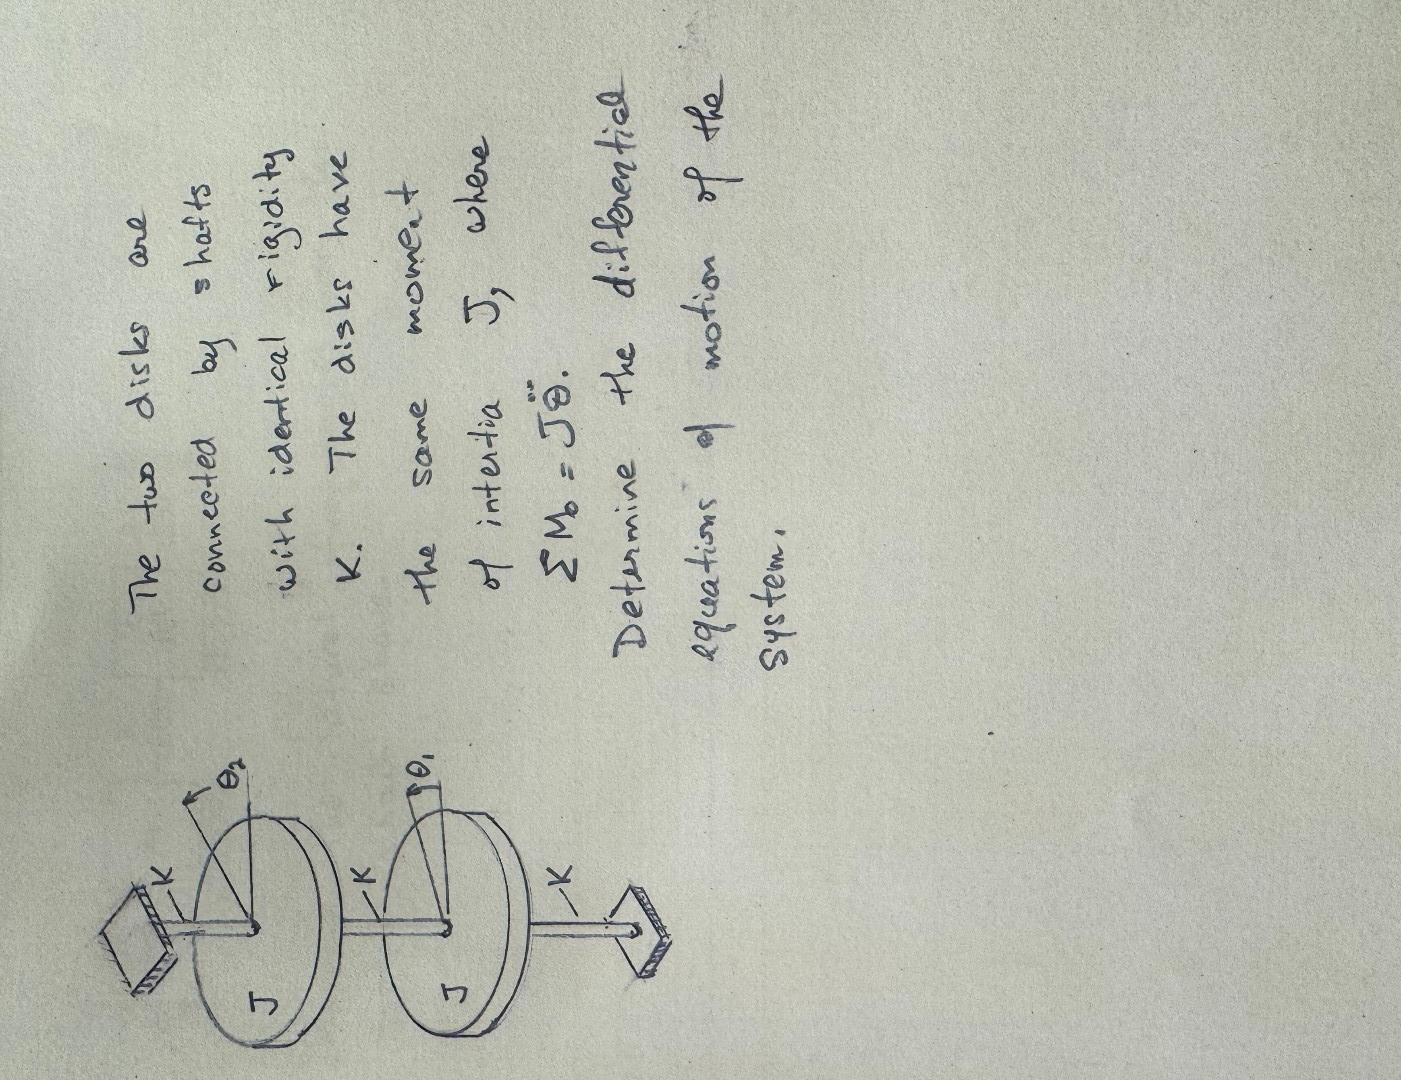 The two disks are
connected by shafts
with identical rigidity
K. The disks have
the same moment
of intertia J, where
ΣM₀ = Jθ̈.
Determine the differential
equations of motion of the
system.
K
θ₂
J
K
θ₁
J
K